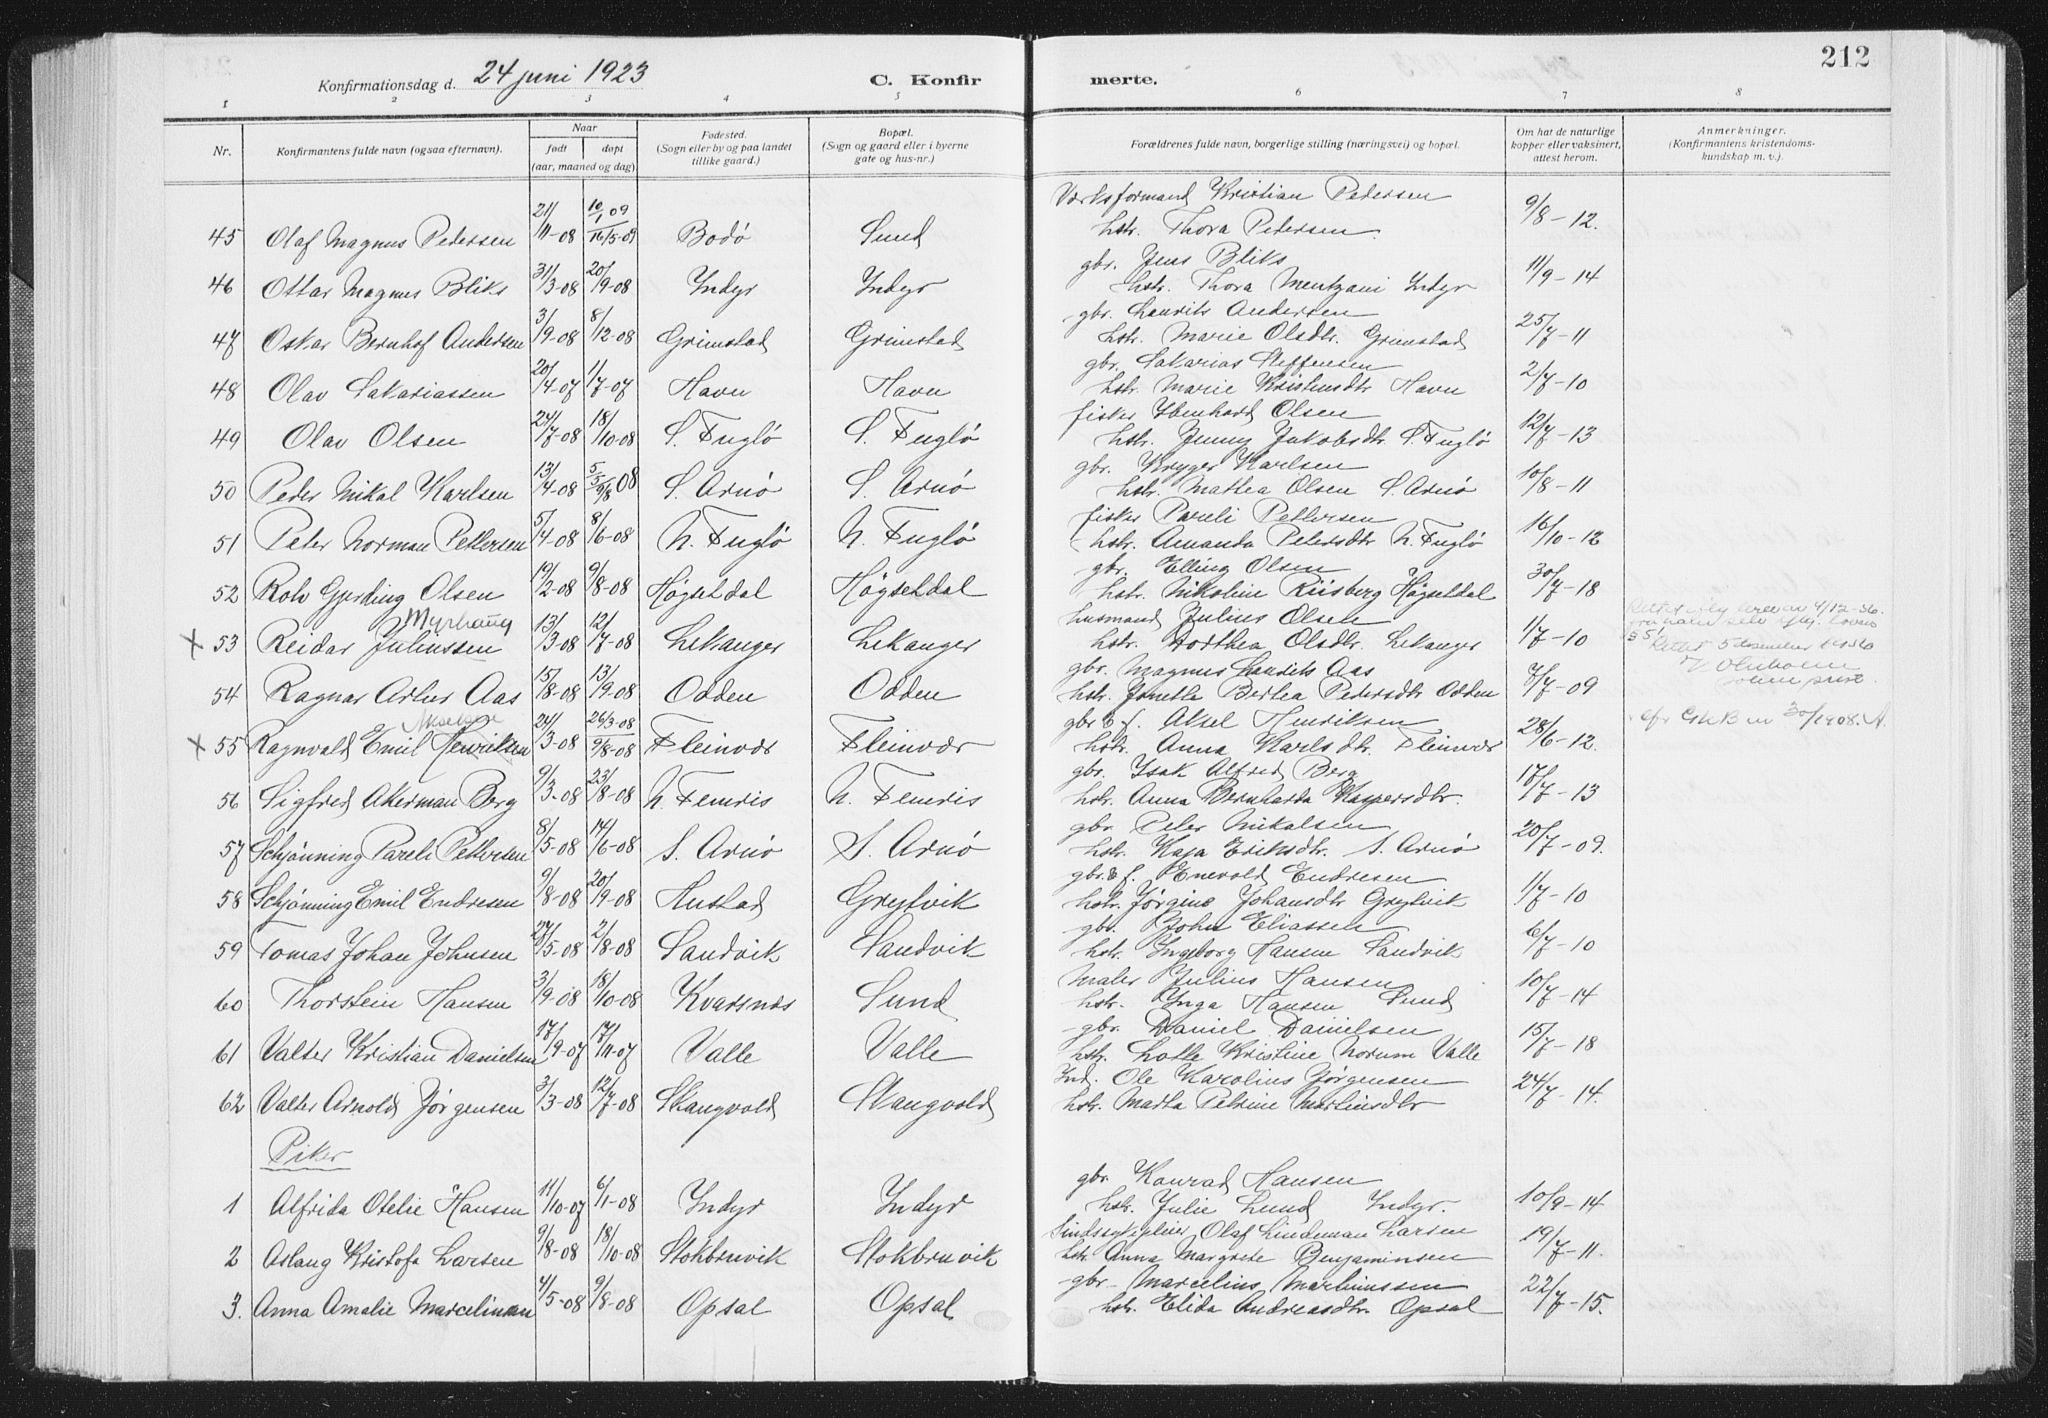 212
Konfirmationsdag d. 24 juni 1923
C. Konfir merte.
1 2 3 4 5 6 7 8
Nr.
Konfirmantens fulde navn (ogsaa efternavn).
Naar
født
døpt
(aar, maaned og dag)
Fødested.
(Sogn eller by og paa landet
tillike gaard.)
Bopæl.
(Sogn og gaard eller i byerne
gate og hus-nr.)
Forældrenes fulde navn, borgerlige stilling (næringsvei) og bopæl.
Om hat de naturlige
kopper eller vaksinert,
attest herom.
Anmerkninger.
(Konfirmantens kristendoms-
kundskap m. v.).
Værksformand Kristian Pedersen
45 Olaf Magnus Pedersen 21/11-08 10/1 09 16/5-09 Bodø Sund hstr. Thora Petersen. 9/8-12.
gbr. Jens Bliks
46 Ottar Magnus Bliks 31/3-08 20/9-08 Indyr Indyr hstr. Thora Mentzoni Indyr 11/9-14
gbr. Laurits Andersen
47 Oskar Bernhof Andersen 3/9-08 8/12-08 Grimstad Grimstad hstr. Marie Olsdtr. Grimstad 25/7-11
gbr. Sakarias Steffensen
48 Olav Sakariassen 20/4-07 1/7-07 Havn Havn hstr. Marie Kristensdtr Havn 2/7-10
fisker Ibenhard Olsen
49 Olav Olsen 24/7-08 18/10-08 S. Fuglø S. Fuglø hstr. Jenny Jakobsdtr S. Fuglø 12/7-13
gbr. Kryger Karlsen
50 Peder Mikal Karlsen 13/4-08 5/5 9/8 08 S. Arnø S. Arnø hstr. Mathea Olsen S. Arnø 10/8-11
fisker Pareli Pettersen
51 Peter Norman Pettersen 5/4-08 8/6-08 N. Fuglø N. Fuglø hstr. Amanda Petersdtr N. Fuglø 16/10-12
gbr. Elling Olsen
52 Rolv Gjerding Olsen 19/2-08 9/8-08 Høgseldal Høgseldal hstr. Nikoline Riisberg Høgseldal 30/7-18
Myrhaug husmand Julius Olsen
x 53 Reidar Juliussen 13/3-08 12/7-08 Lekanger Lekanger hstr. Dorthea Olsdtr. Lekanger 1/7-10
gbr. Magnus Laurits Aas
54 Ragnar Artur Aas 15/8-08 13/9-08 Odden Odden hstr. Jonetta Bertea Pedersdtr Odden 7/7-09
Akselsen gbr & f. Aksel Henriksen
x 55 Ragnvald Emil Henriksen 24/3-08 26/3-08 9/8-08 Fleinvær Fleinvær hstr. Anna Karlsdtr. Fleinvær 28/6-12.
gbr. Isak Alfred Berg
56 Sigfred Akerman Berg 9/3-08 23/8-08 N. Femris N. Femris hstr. Anna Bernharda Kaspersdtr. 17/7-13
gbr. Peter Mikalsen
57 Schjønning Pareli Pettersen 8/5-08 14/6-08 S. Arnø S. Arnø hstr. Kaja Eriksdtr. S. Arnø 20/7-09.
gbr & f. Enevold Endresen
58 Schjønning Emil Endresen 9/8-08 20/9-08 Hustad Grytvik hstr. Jørgine Johansdtr Grytvik 1/7-10
gbr. John Eliassen
59 Tomas Johan Johnsen 27/5-08 2/8-08 Sandvik Sandvik hstr. Ingeborg Hansen Sandvik 6/7-10
Maler Julius Hansen
60 Thorstein Hansen 3/9-08 18/10-08 Kvarsnes Sund hstr. Inga Hansen Sund 10/7-14
gbr. Daniel Danielsen
61 Valter Kristian Danielsen 17/9-07 17/11-07 Valle Valle hstr. Lotte Kristine Norum Valle 15/7-18
Ind. Ole Karolius Jørgensen
62 Valter Arnold Jørgensen 3/3-08 12/7-08 Skangvold Skangvold hstr. Marta Petrine Martinsdtr 24/7-14.
Piker
gbr. Konrad Hansen
1 Alfrida Otelie Hansen 11/10-07 6/1-08 Indyr Indyr hstr. Julie Lund Indyr. 10/9-14
Olaf Lindeman Larsen
2 Aslaug Kristofa Larsen 9/8-08 18/10-08 Stokbruvik Stokbruvik hstr. Anna Margrete Benjaminsen 19/7-11.
gbr. Marcelius Martinussen
3. Anna Amalie 4/5-08 9/8-08 Opsal Opsal hstr. Elida Andreasdtr. Opsal 22/7-15.